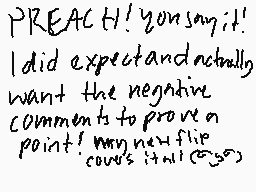 PREACH! You say it!
I did expect and actually
want the negative
comments to prove a
point! my new flip
covers it all (ಠ_ಠ)